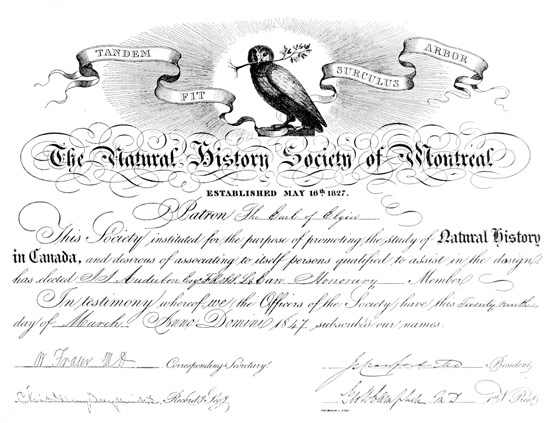 TANDEM FIT SURCULUS ARBOR
The Natural History Society of Montreal
ESTABLISHED MAY 16th 1827.
Patron The Earl of Elgin
This Society instituted for the purpose of promoting the study of Natural History
in Canada, and desirous of associating to itself persons qualified to assist in the design,
has elected J. J. Audubon Esq Honorary Member
In testimony whereof we the Officers of the Society have this
day of March Anno Domini 1847 subscribed our names.
W Fraser M D Corresponding Secretary President
Recordg Secy Geo W Campbell M D V Prest